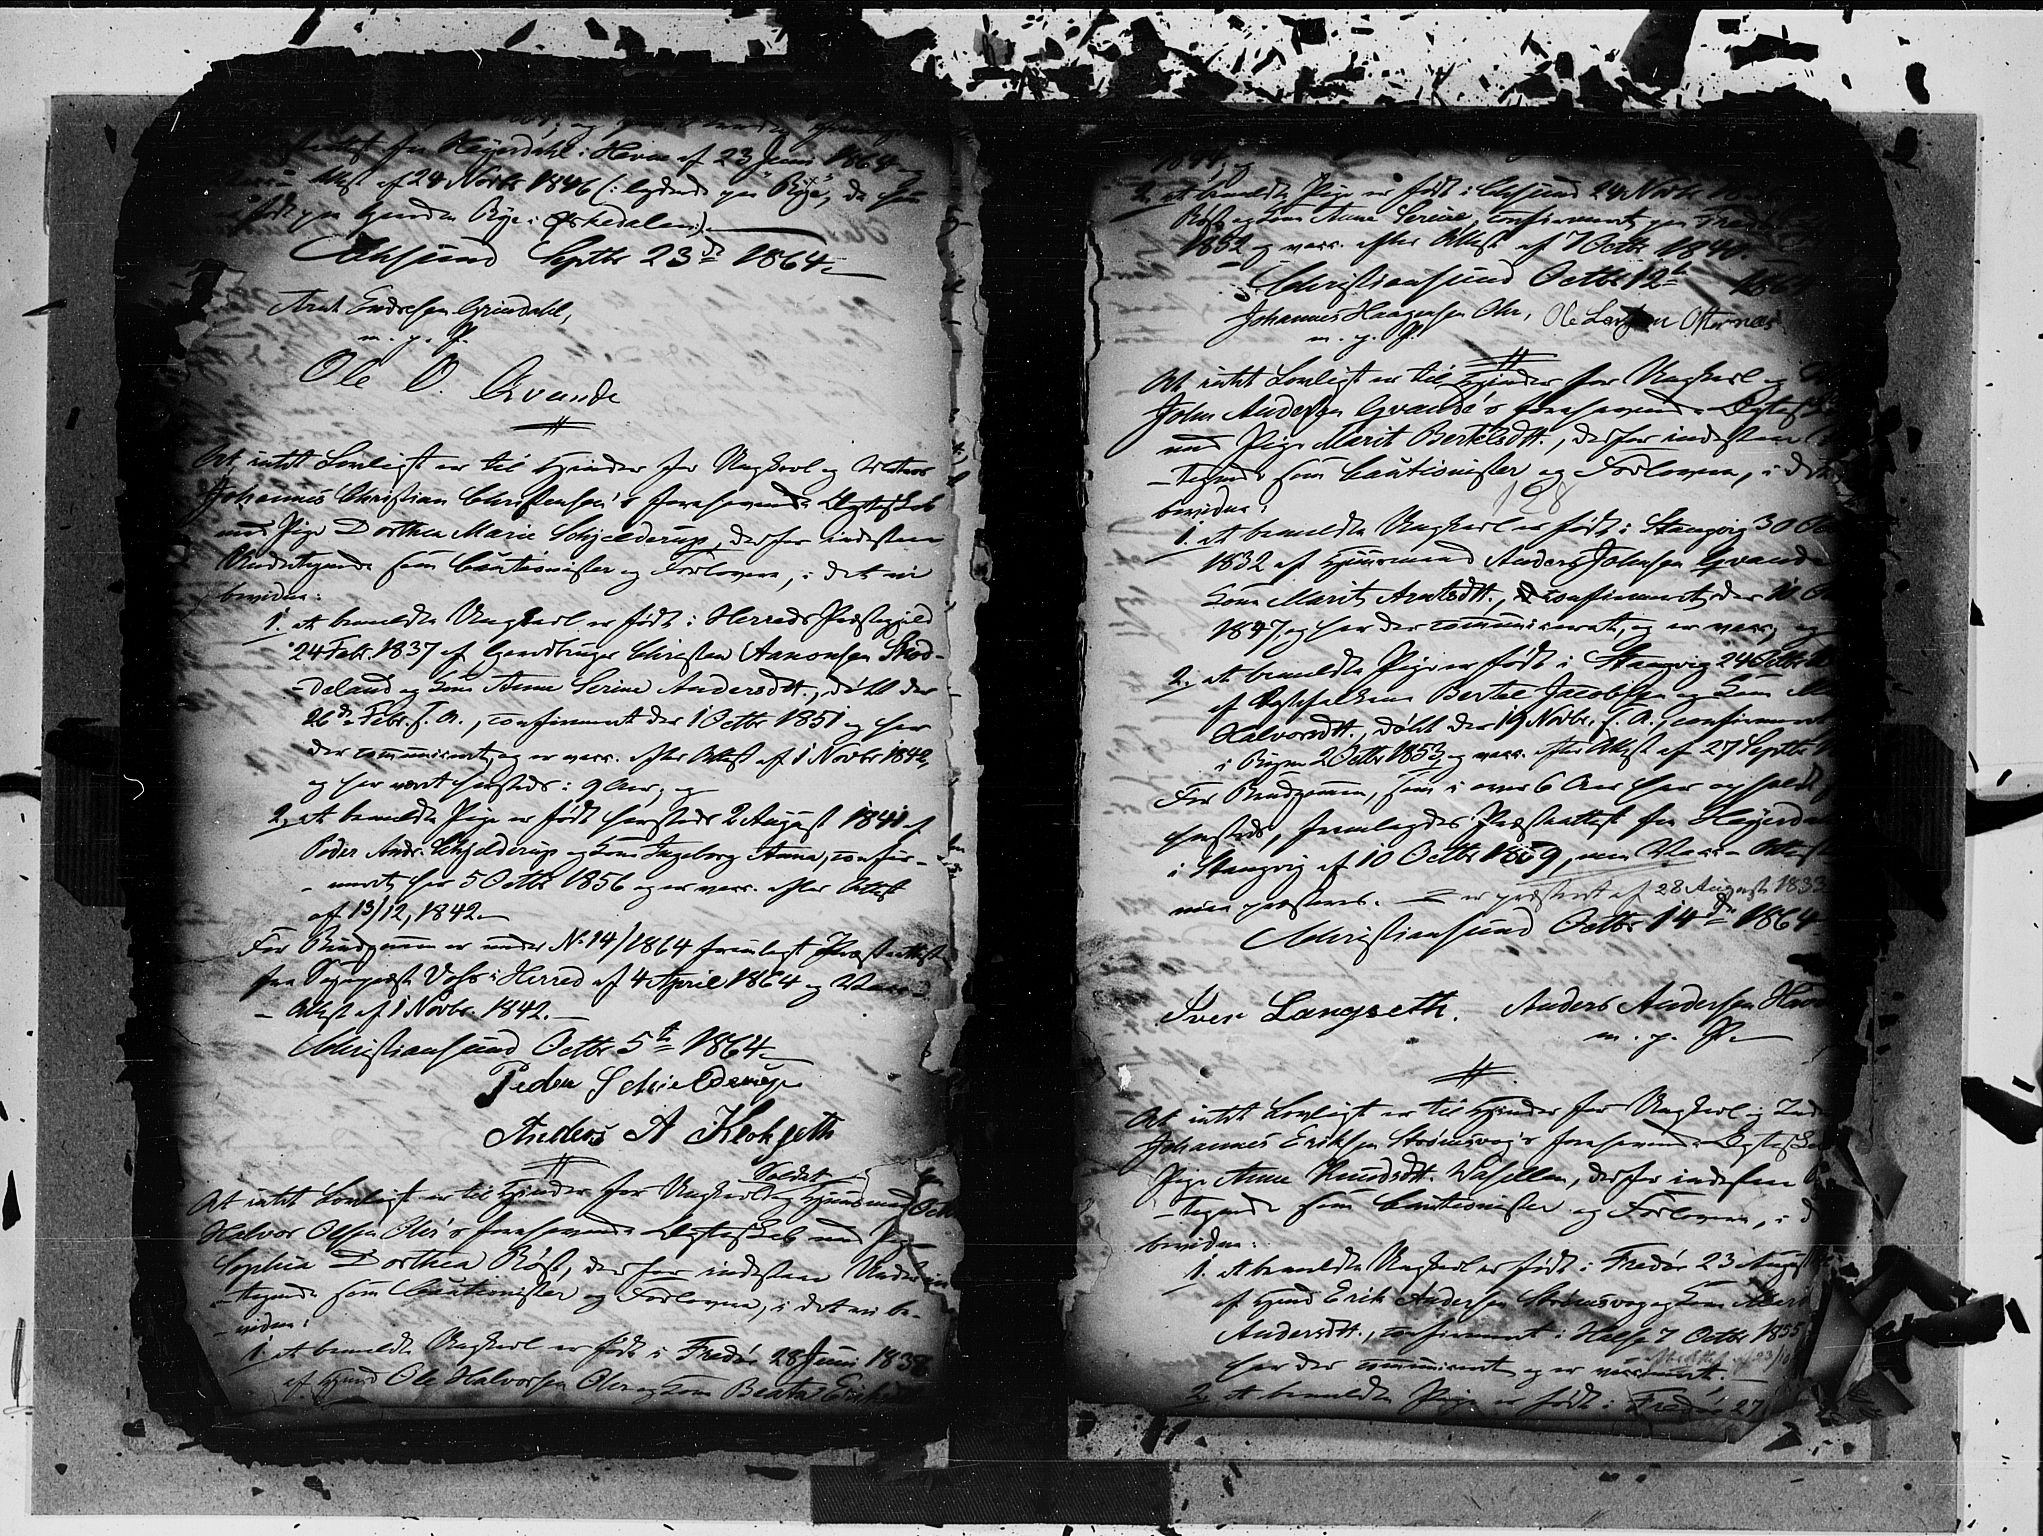 Attest fra Heyerdahl i Hevne af 23 Juni 1864 og
Attest af 24 Novbr 1846 (: lydende paa "Rye", da han
er født paa Gaarden Rye i Ørkedalen:).
Chsund Septbr 23de 1864.
Arnt Endresen Grindahl,
m. p. P.
Ole O. Qvande
At intet Lovligt er til Hinder for Ungkarl og
Johannes Christian Christensen's forehavende Ægteskab
med Pige Dorthea Marie Schjelderup, derfor indestaae
Undertegnede som Cautionister og Forlovere, i det vi
bevidne:
1. at bemeldte Ungkarl er født i Herreds Præstegjeld
24 Febr. 1837 af Gaardbruger Christen Aanonsen Skod-
-deland og Kone Anne Serine Andersdtt., døbt der
26de Febr. s. A., confirmeret der 1 Octbr 1851 og har
der communiceret, og er vacc. efter Attest af 1 Novbr 1842,
og har været hersteds i 9 Aar; og
2. at bemeldte Pige er født hersteds 2 August 1841 af
Peder Andr. Schjelderup og Kone Ingeborg Anna, confir-
-meret her 5 Octbr 1856 og er vacc. efter Attest
af 13/12, 1842.
For Brudgommen er under No 14/1864 fremlagt Præsteattest
fra Sognepræst Voss i Herred af 4 April 1864 og Vacc.-
-Attest af 1 Novbr. 1842.
Christiansund Octbr 5te 1864.
Peder Schielderup
Anders A Klokseth
Soldat
At intet Lovligt er til Hinder for Ungkarl og Huusmand
Halvor Olsen Ohr's forehavende Ægteskab med Pige
Sophia Dorthea Röst, derfor indestaae Under-
-tegnede som Cautionister og Forlovere, i det vi be-
-vidne:
1. at bemeldte Ungkarl er født i Fredø 28 Juni 1838
af Hmd Ole Halvorsen Ohr og Kone Beata Eriksdtt
1844; og
2. at bemeldte Pige er født i Chsund 24 Novbr
Röst og Kone Anne Serine, confirmeret paa Fredø
1852 og vacc. efter Attest af 7 Octbr 1840.
Christiansund Octbr 12te 1864
Johannes Haagensen Ohr, Ole Larsen Otternæs
m. p. P.
At intet Lovligt er til Hinder for Ungkarl og
John Andersen Qvande's forehavende Ægteskab
med Pige Marit Bertelsdtt., derfor indestaae
-tegnede som Cautionister og Forlovere, i det vi
128
bevidne:
1. at bemeldte Ungkarl er født i Stangvig 30
1832 af Huusmand Anders Johnsen Qvande
Kone Marit Arntsdtt., confirmeret der 10
1847 og har der communiceret, og er vacc., og
2. at bemeldte Pige er født i Stangvig 24 Octbr
af Bertel Jacobsen og Kone
Halvorsdtt., døbt der 19 Novbr. s. A., confirmeret
i Byen 2 Octbr 1853, og vacc. efter Attest af 27 Septbr
For Brudgommen, som i over 6 Aar har opholdt
hersteds, fremlagdes Præsteattest fra Heyerdahl
i Stangvig af 10 Octbr 1859, men Vacc.-Attest
er præsteret af 28 August 1833
Christiansund Octbr 14de 1864
Iver Langseth. Anders Andersen
m. p. P.
At intet Lovligt er til Hinder for Ungkarl og
Johannes Eriksen Strömsvog's forehavende Ægteskab
Pige Anne Knudsdtt. Vasellen, derfor indestaae
-tegnede som Cautionister og Forlovere, i
bevidne:
1. at bemeldte Ungkarl er født i Fredø 23 August
af Hmd Erik Andersen Strömsvog og Kone
Andersdtt., confirmeret i Halse 7 Octbr 1855
har der communiceret og er vaccineret.
2. at bemeldte Pige er født i Fredø 27